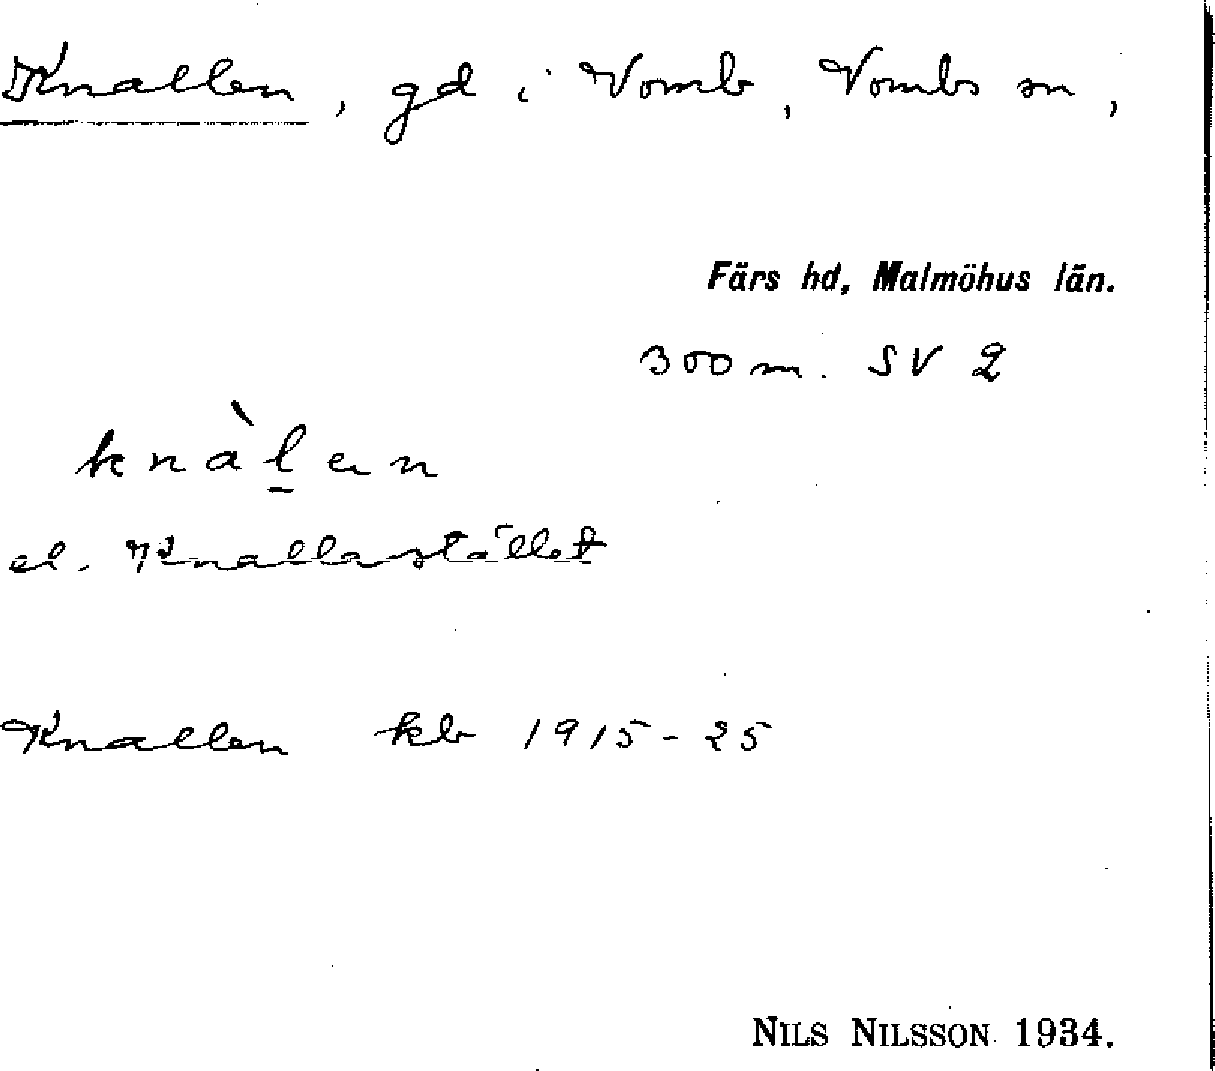 Knallen, gd i Vomb, Vombs sn,
Färs hd, Malmöhus län.
300 m. SV 2
knàl̲en
el. Knallastället
Knallen kb 1915-25
NILS NILSSON 1934.